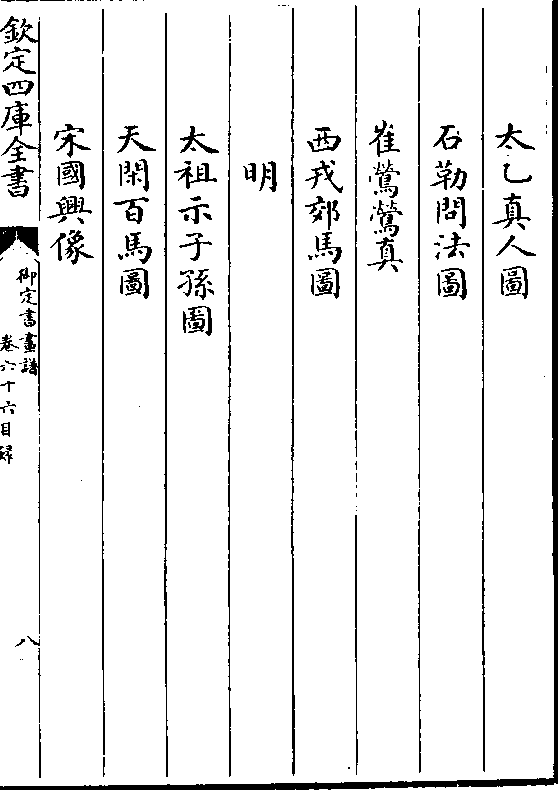 太乙真人圖
石勒問法圖
崔鶯鶯真
西戎郊馬圖
明
太祖示子孫圖
天閑百馬圖
宋國興像
欽定四庫全書
御定書畫譜
卷六十六目録
八